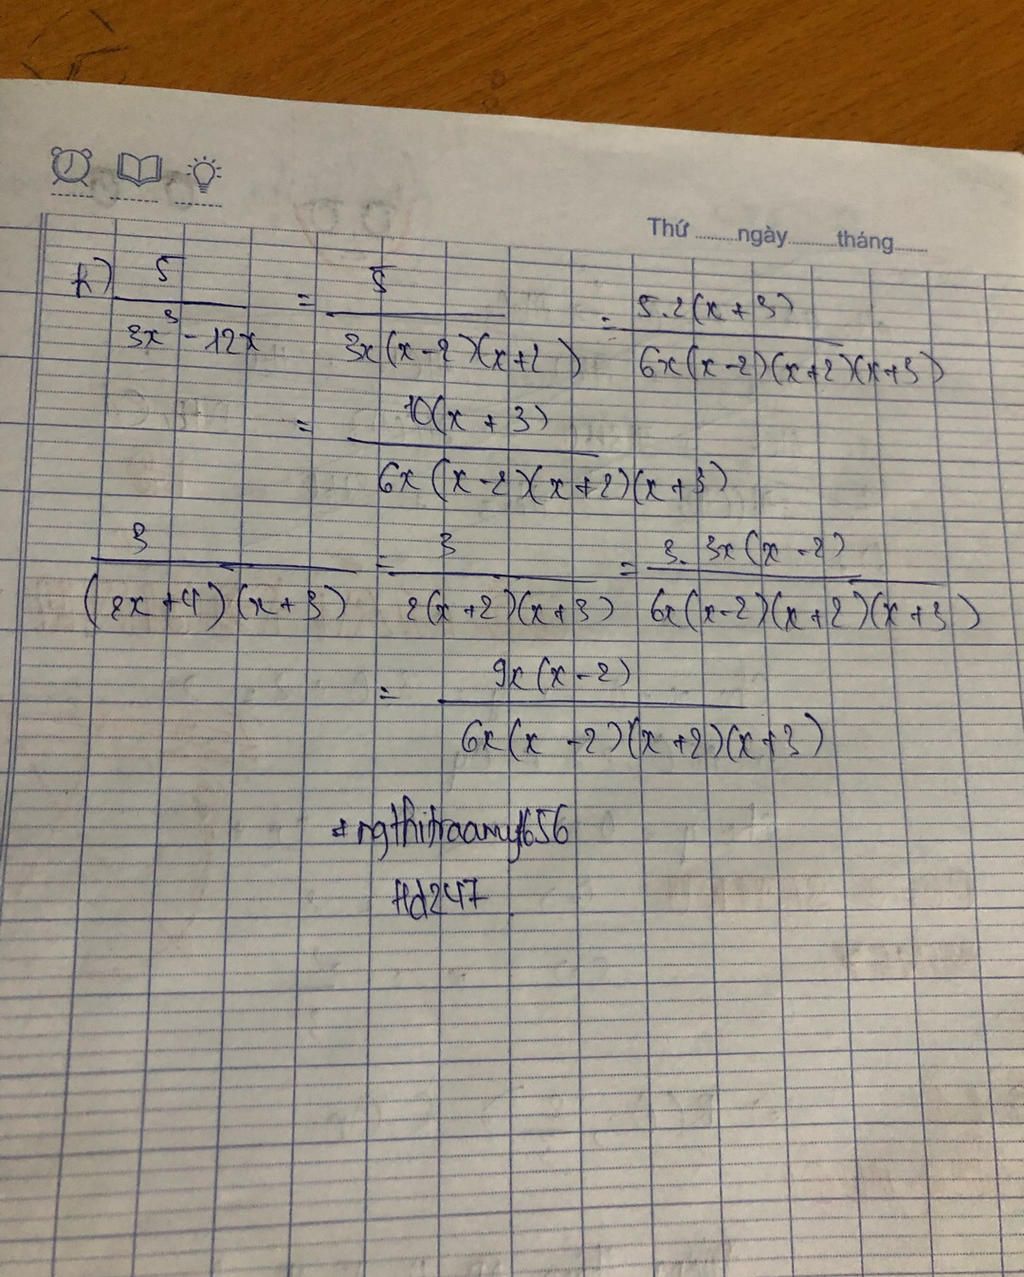 Thứ ........ngày.........tháng......
k) 5/(3x³ - 12x) = 5/(3x(x-2)(x+2)) = 5.2(x+3)/(6x(x-2)(x+2)(x+3))
= 10(x+3)/(6x(x-2)(x+2)(x+3))
3/((2x+4)(x+3)) = 3/(2(x+2)(x+3)) = 3.3x(x-2)/(6x(x-2)(x+2)(x+3))
= 9x(x-2)/(6x(x-2)(x+2)(x+3))